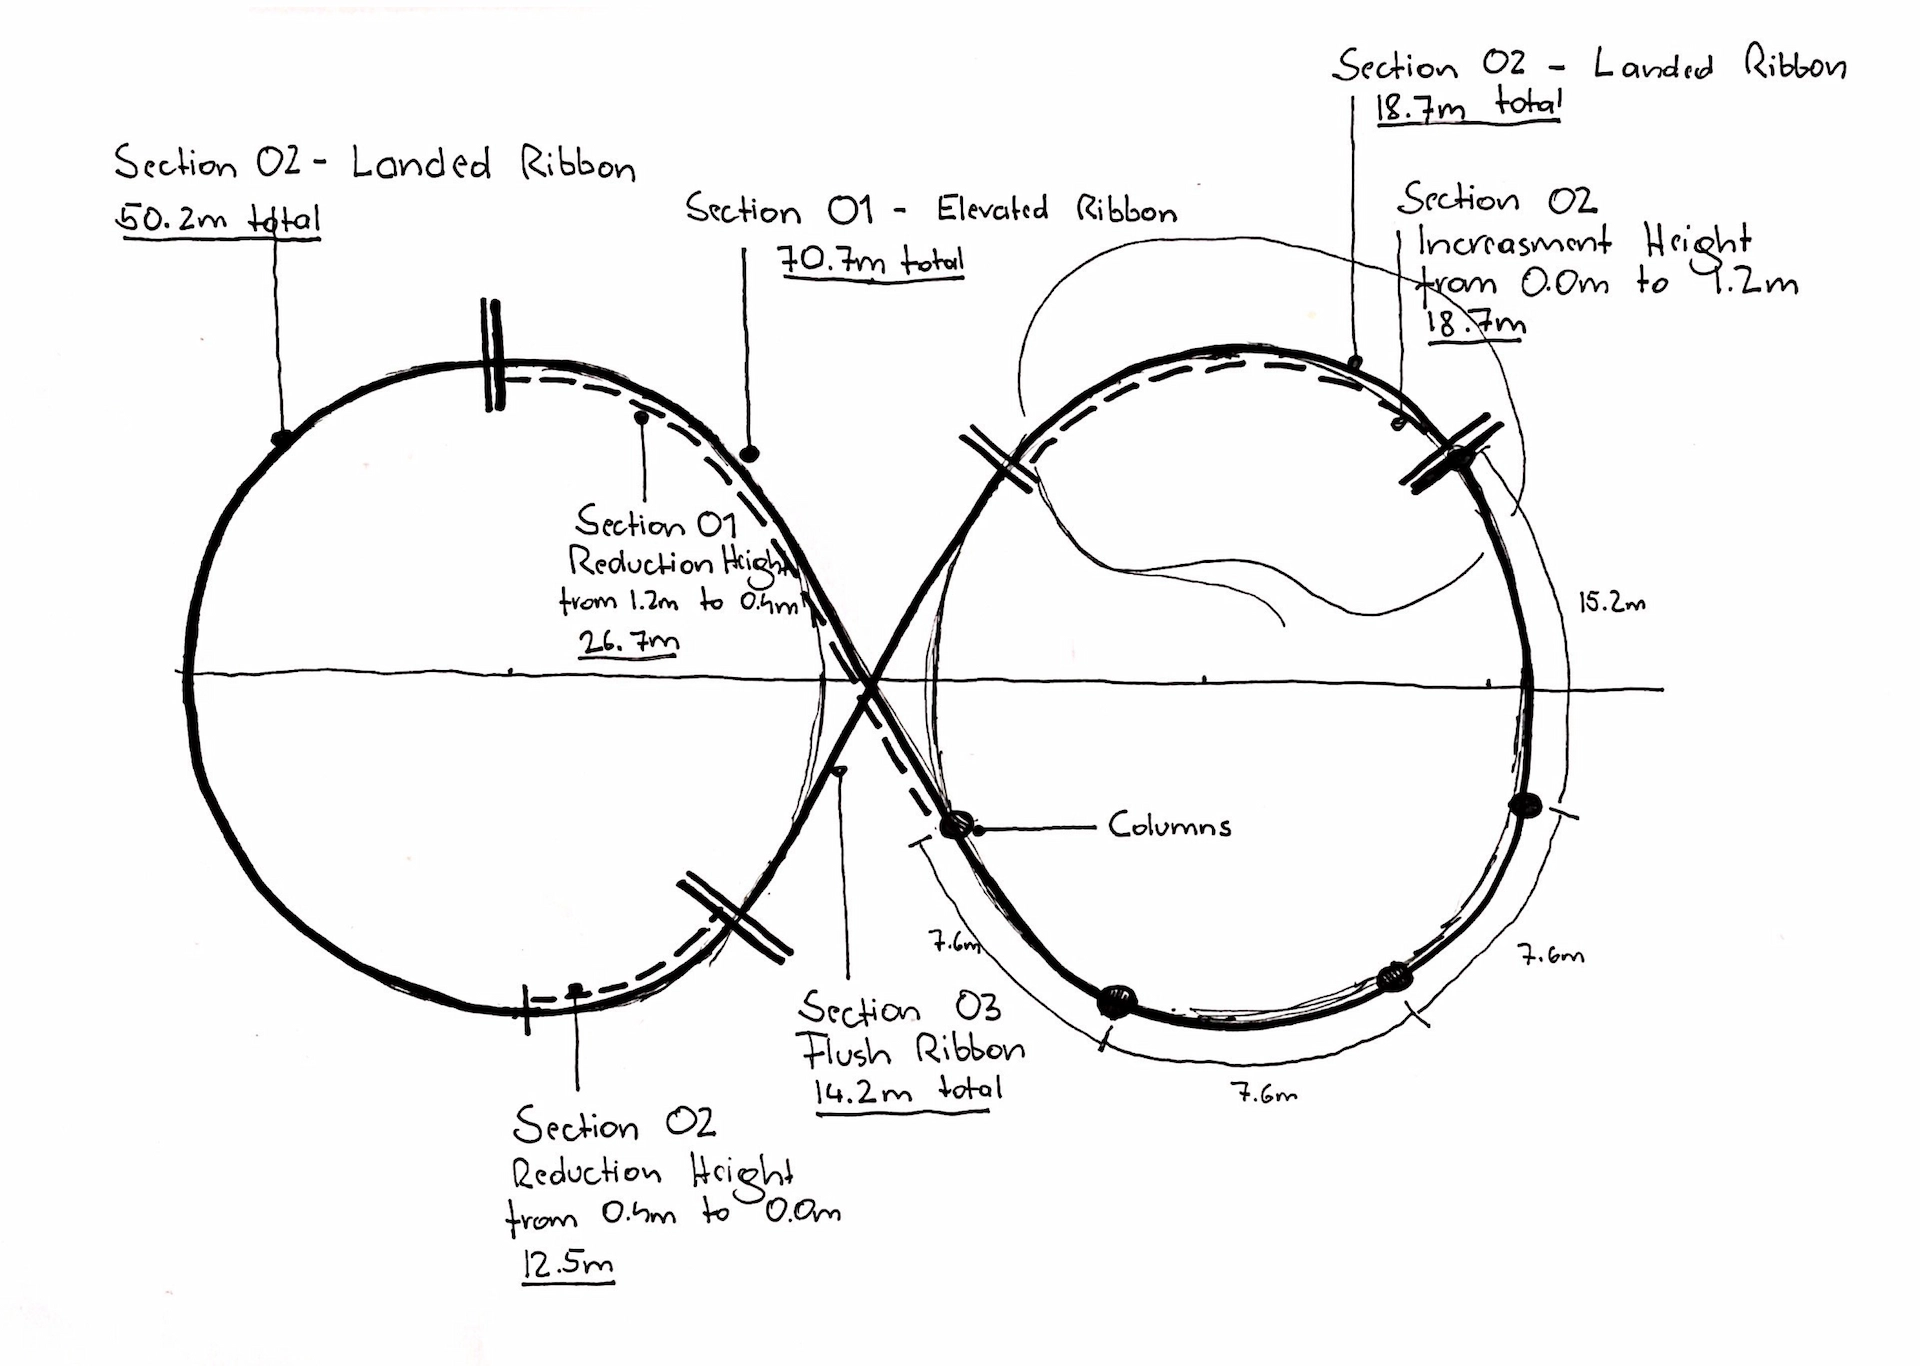 Section 02 - Landed Ribbon
18.7m total
Section 02 - Landed Ribbon
50.2m total
Section 01 - Elevated Ribbon
70.7m total
Section 02
Increasment Height
from 0.0m to 1.2m
18.7m
Section 01
Reduction Height
from 1.2m to 0.4m
26.7m
15.2m
Columns
7.6m
7.6m
Section 03
Flush Ribbon
14.2m total
7.6m
Section 02
Reduction Height
from 0.4m to 0.0m
12.5m